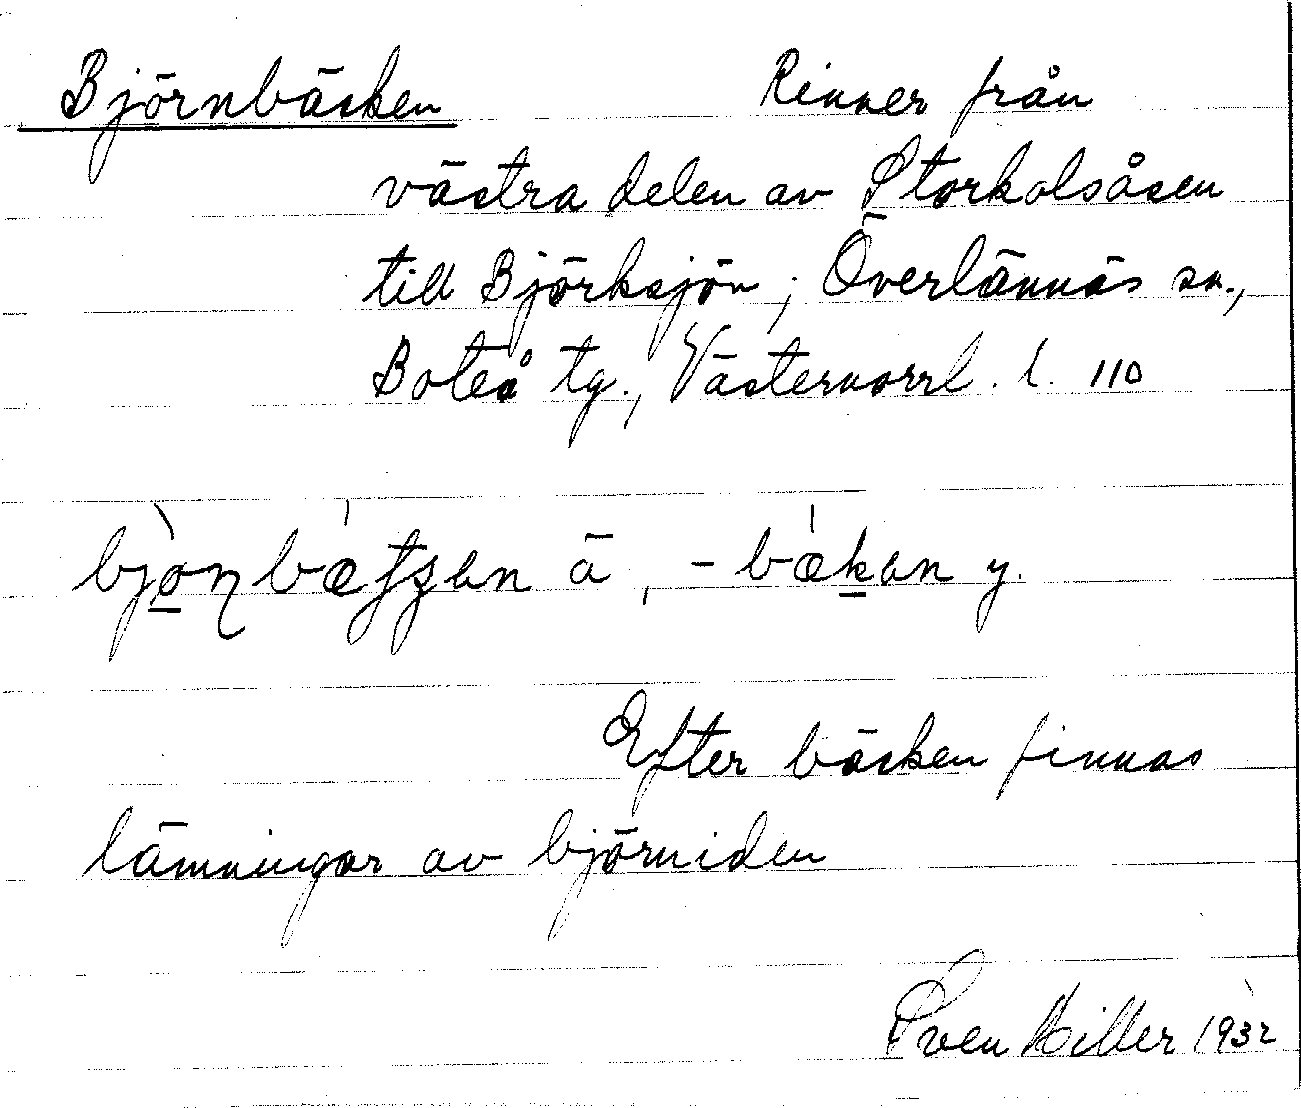 Björnbäcken Rinner från
västra delen av Storkolsåsen
till Björksjön; Överlännäs sn.,
Boteå tg., Västernorrl. l. 110
bjo̲ɳbætʂen ä, -bæk̲en y.
Efter bäcken finnas
lämningar av björniden
Sven Hiller 1932